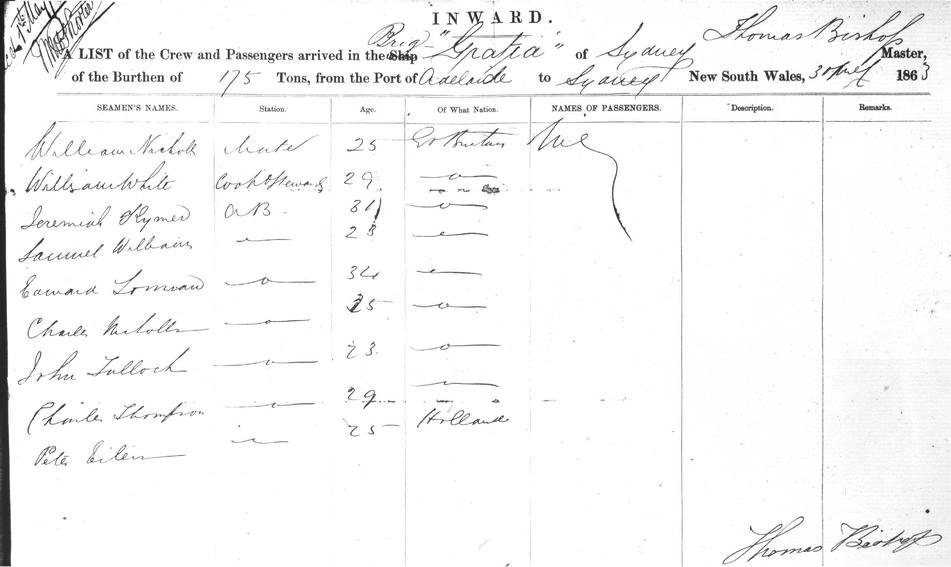 INWARD.
Brig "Gratia" Thomas Bishop
A LIST of the Crew and Passengers arrived in the Ship of Sydney Master,
of the Burthen of 175 Tons, from the Port of Adelaide to Sydney New South Wales, 30 April 1863
SEAMEN'S NAMES. Station. Age. Of What Nation. NAMES OF PASSENGERS. Description. Remarks.
William Nicholls Mate 25 Gt Britain
William White Cook & Steward 29 —o—
Jeremiah Rymer AB 31 —o—
Samuel Williams — 23 —
Edward —o— 34 —
Charles Nicholls —o— 35 —o—
John Tulloch —o— 23 —o—
Charles Thompson —o— 29 —o—
Peter Eilers — 25 Hollande
Thomas Bishop